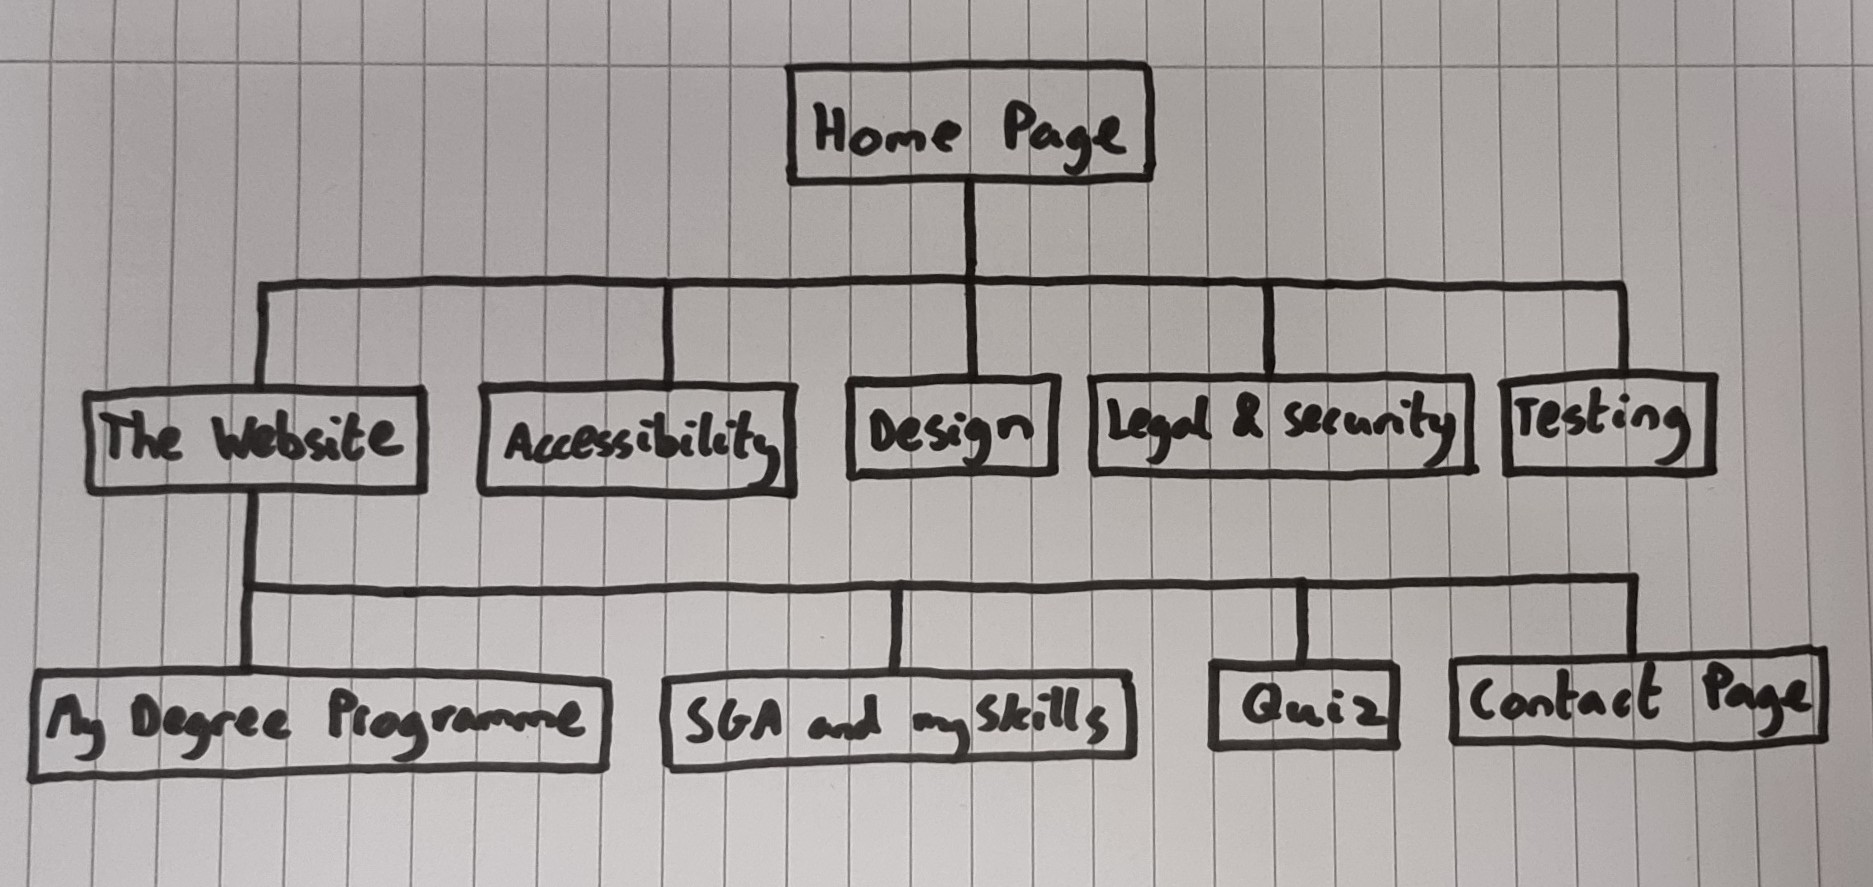 Home Page
The Website
Accessibility
Design
Legal & security
Testing
My Degree Programme
SGA and my skills
Quiz
Contact Page